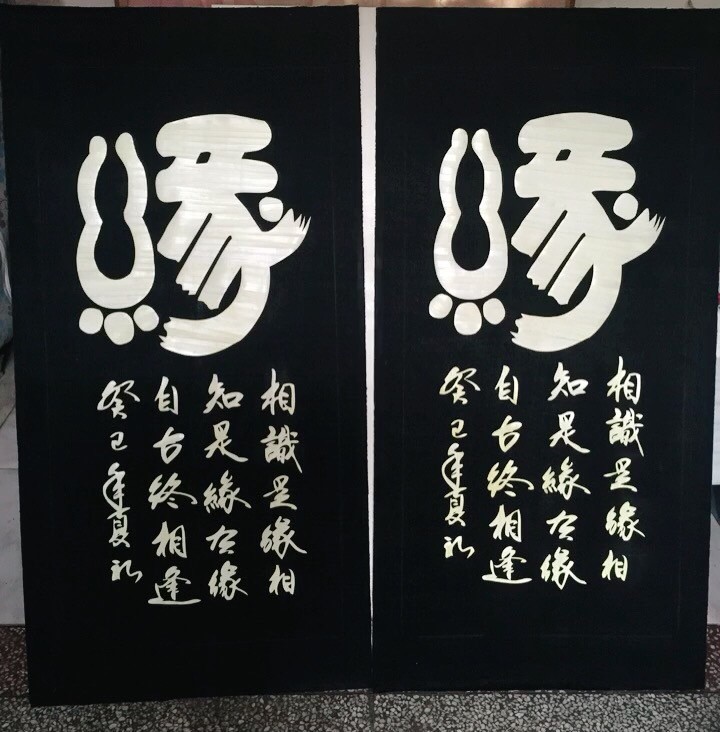 緣
相識是緣相
知是緣有緣
自古終相逢
癸巳年夏礼
緣
相識是緣相
知是緣有緣
自古終相逢
癸巳年夏礼